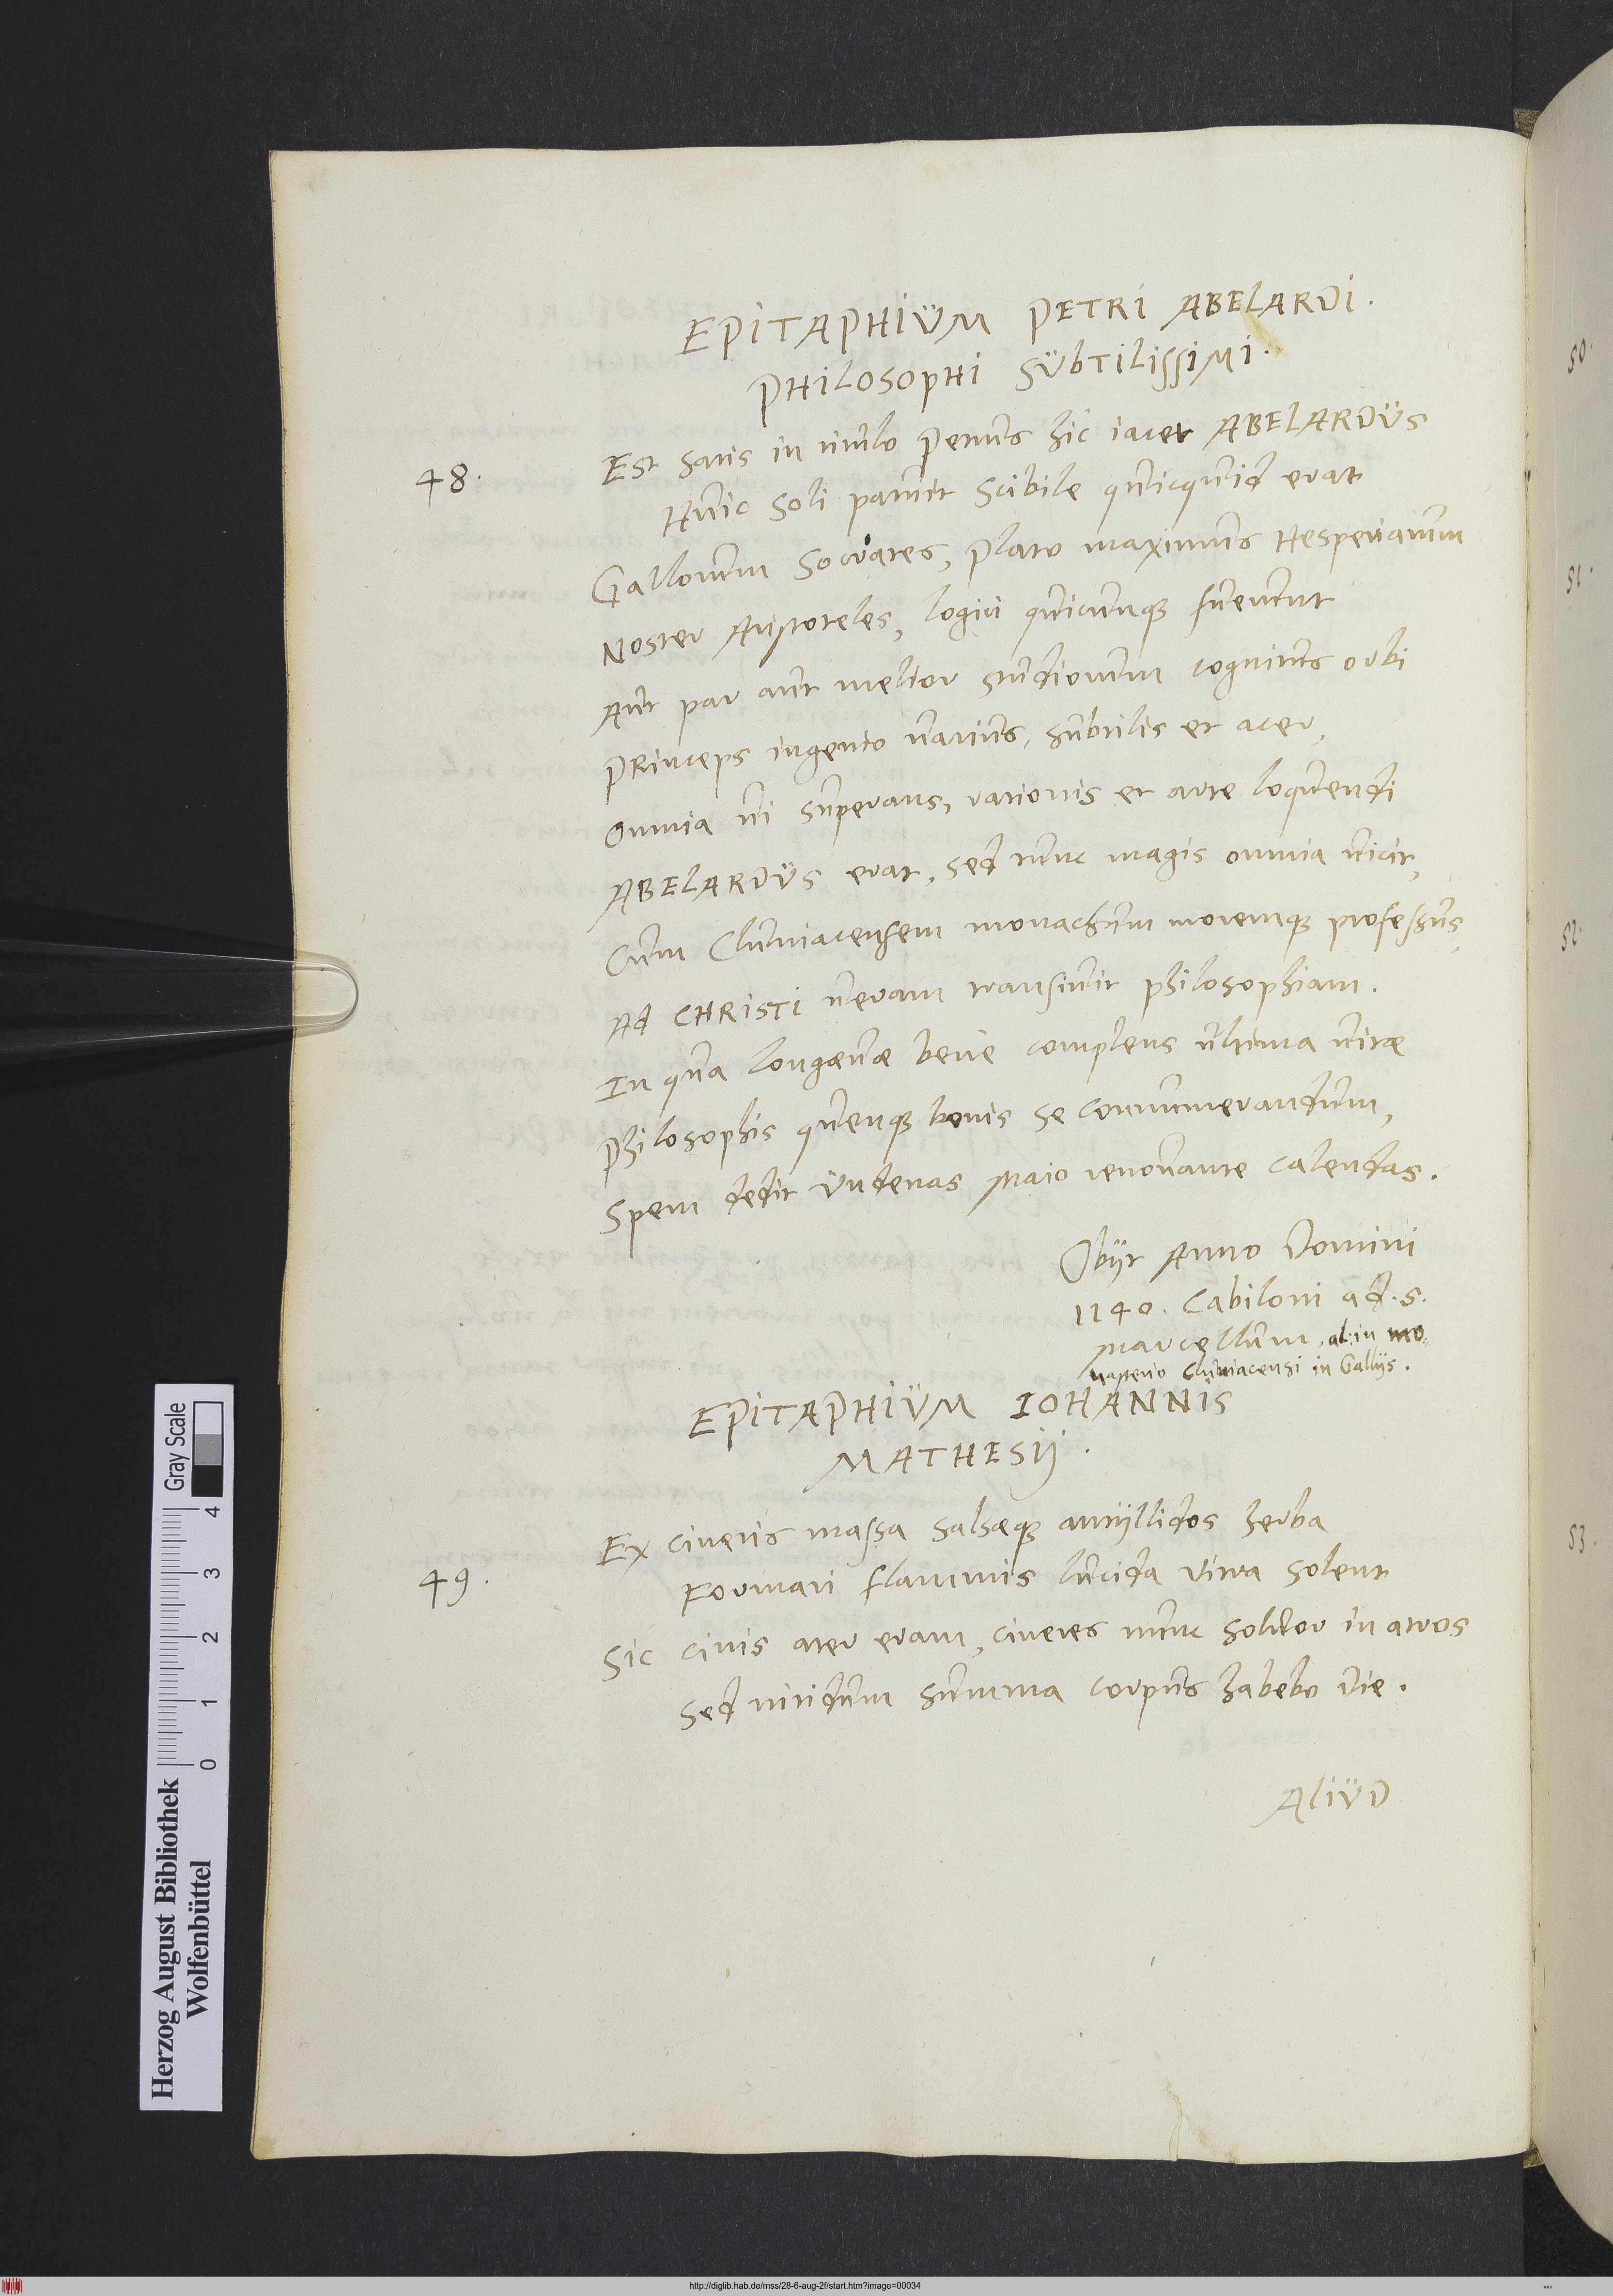 EPITAPHIÜM PETRI ABELARDI.
PHILOSOPHI SÜBTILISSIMI.
48.
Est satis in titulo Petrus hic iacet ABELARDÜS
Huic soli patuit scibile quicquid erat
Gallorum Socrates, Plato maximus Hesperiarum
Noster Aristoteles, logici quicunque fuerunt
Aut par aut melior studiorum cognitus orbi
Princeps ingenio uarius, subtilis et acer,
Omnia ui superans, rationis et arte loquendi
ABELARDÜS erat, sed nunc magis omnia uicit,
Cum Cluniacensem monachum moremque professus,
Ad CHRISTI ueram transiuit philosophiam.
In qua longæuæ bene complens ultima uitæ
Philosophis quenque bonis se connumerandum,
Spem dedit Undenas Maio renouante calendas.
Obijt Anno Domini
1140. Cabiloni ad. S.
Marcellum, al: in mo:
nasterio Cluniacensi in Gallijs.
EPITAPHIÜM IOHANNIS
MATHESIJ.
49.
Ex cineris massa salsæque amyllidos herba
Formari flammis lucida Vitra solent
Sic cinis ater eram, cineres nunc soluor in atros
Sed nitidum summa corpus habebo die.
ALIÜD
50.
51.
52.
53.
Herzog August Bibliothek
Wolfenbüttel
Gray Scale
0 1 2 3 4
http://diglib.hab.de/mss/28-6-aug-2f/start.htm?image=00034